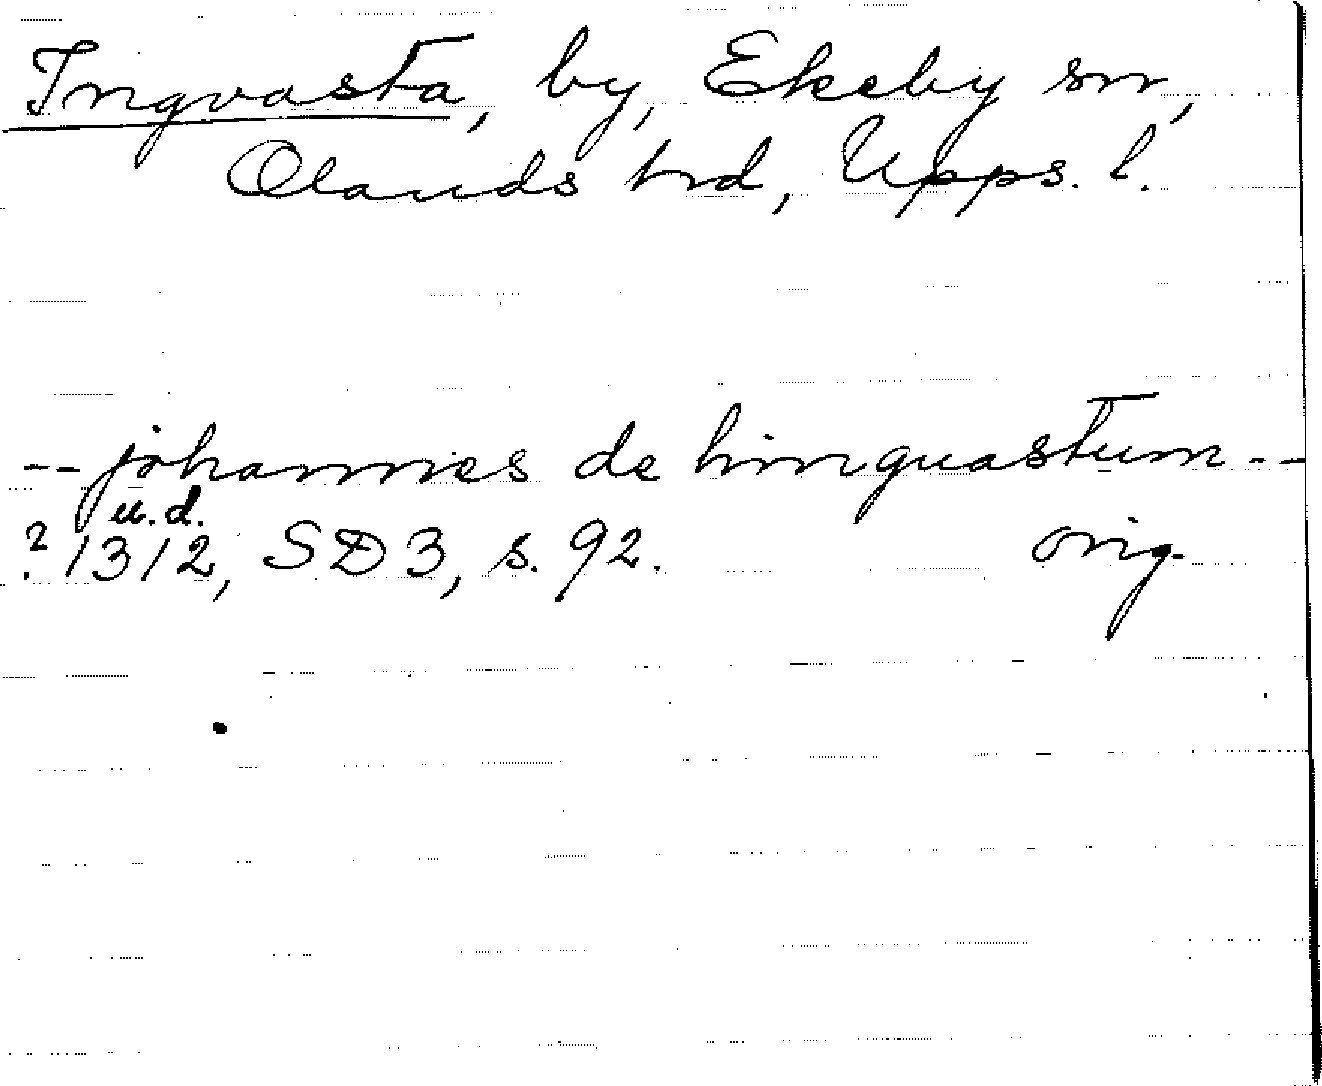 Ingvasta, by, Ekeby sn,
Olands hrd, Upps. l.
-- johannes de hinguastum --
u.d.
? 1312, SD 3, s. 92. orig.